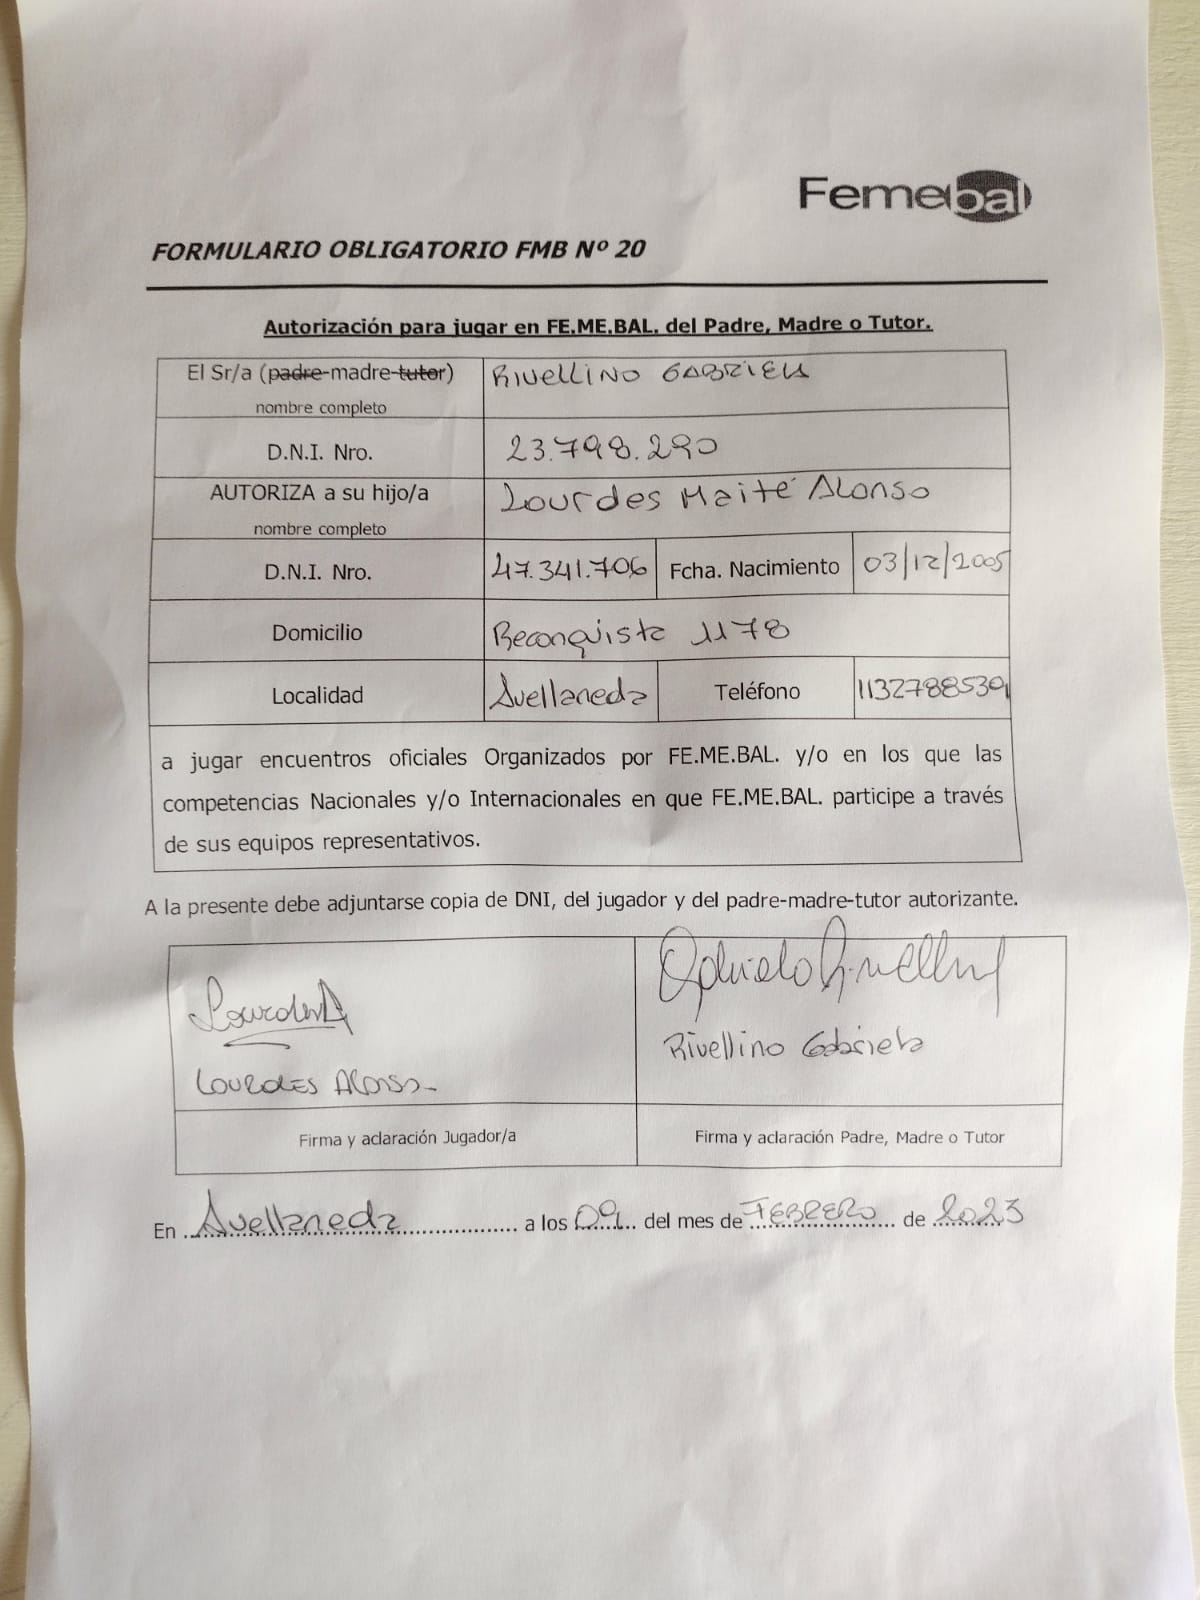 Femebal
FORMULARIO OBLIGATORIO FMB Nº 20
Autorización para jugar en FE.ME.BAL. del Padre, Madre o Tutor.
El Sr/a (padre-madre-tutor) RIVELLINO GABRIELA
nombre completo
D.N.I. Nro. 23.798.290
AUTORIZA a su hijo/a Lourdes Maité Alonso
nombre completo
D.N.I. Nro. 47.341.706 Fcha. Nacimiento 03/12/2005
Domicilio Reconquista 1178
Localidad Avellaneda Teléfono 1132788530
a jugar encuentros oficiales Organizados por FE.ME.BAL. y/o en los que las
competencias Nacionales y/o Internacionales en que FE.ME.BAL. participe a través
de sus equipos representativos.
A la presente debe adjuntarse copia de DNI, del jugador y del padre-madre-tutor autorizante.
LourdesA Gabriela Rivellino
LOURDES ALONSO Rivellino Gabriela
Firma y aclaración Jugador/a Firma y aclaración Padre, Madre o Tutor
En Avellaneda a los 09 del mes de FEBRERO de 2023